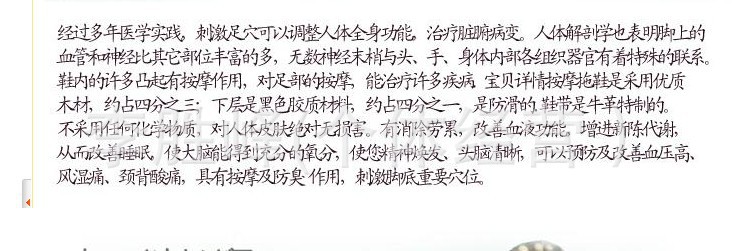 经过多年医学实践，刺激足穴可以调整人体全身功能，治疗脏腑病变。人体解剖学也表明脚上的
血管和神经比其它部位丰富的多，无数神经末梢与头、手、身体内部各组织器官有着特殊的联系。
鞋内的许多凸起有按摩作用，对足部的按摩，能治疗许多疾病 宝贝详情按摩拖鞋是采用优质
木材，约占四分之三；下层是黑色胶质材料，约占四分之一，是防滑的，鞋带是牛革特制的。
不采用任何化学物质、对人体皮肤绝对无损害、有消除劳累，改善血液功能，增进新陈代谢，
从而改善睡眠，使大脑能得到充分的氧分，使您精神焕发、头脑清晰，可以预防及改善血压高、
风湿痛、颈背酸痛，具有按摩及防臭 作用，刺激脚底重要穴位。